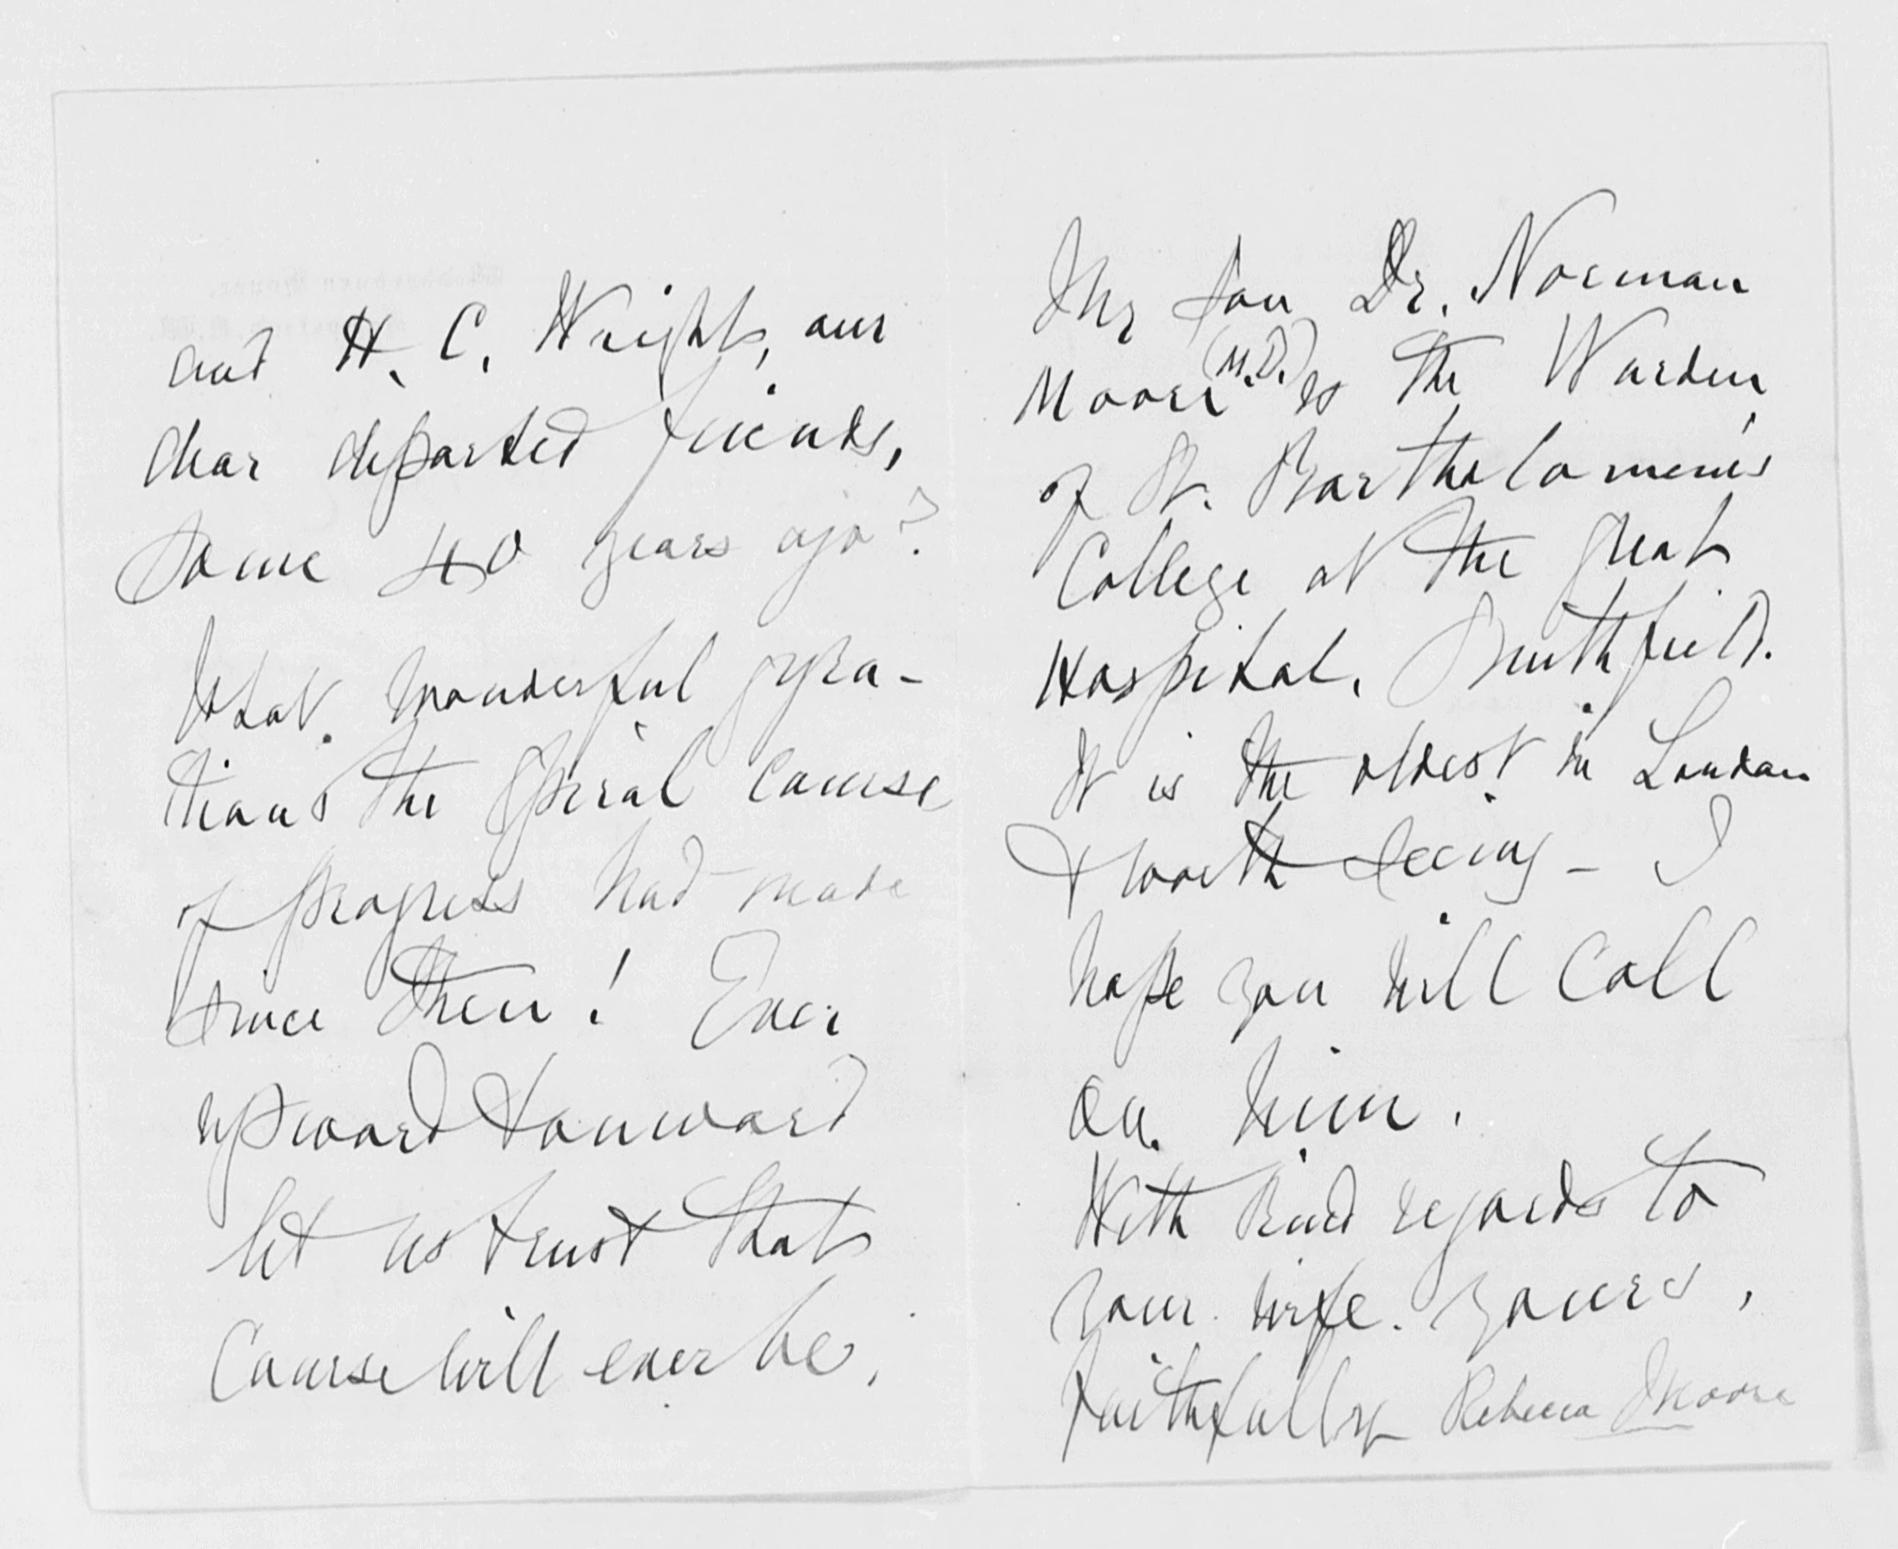 and H. C. Wright, our
dear departed friends,
some 40 years ago?
What wonderful gyra-
tions the spiral course
of progress had made
since then! Ever
upward & onward
let us trust that
Course will ever be.
My son Dr. Norman
Moore (M.D.) is the Warden
of St. Bartholomew's
College at the great
Hospital, Smithfield.
It is the oldest in London
& worth seeing - I
hope you will call
on him.
With kind regards to
your wife. Yours,
faithfully Rebecca Moore